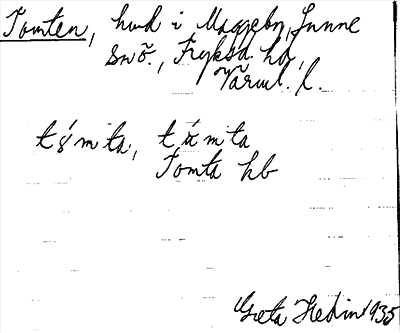 Tomten, hmd i Maggebyn, Sunne
sn õ., Fryksd. hd,
Värml. l.
tó̤mta, tάmta
Tomta hb
Greta Hedin 1935